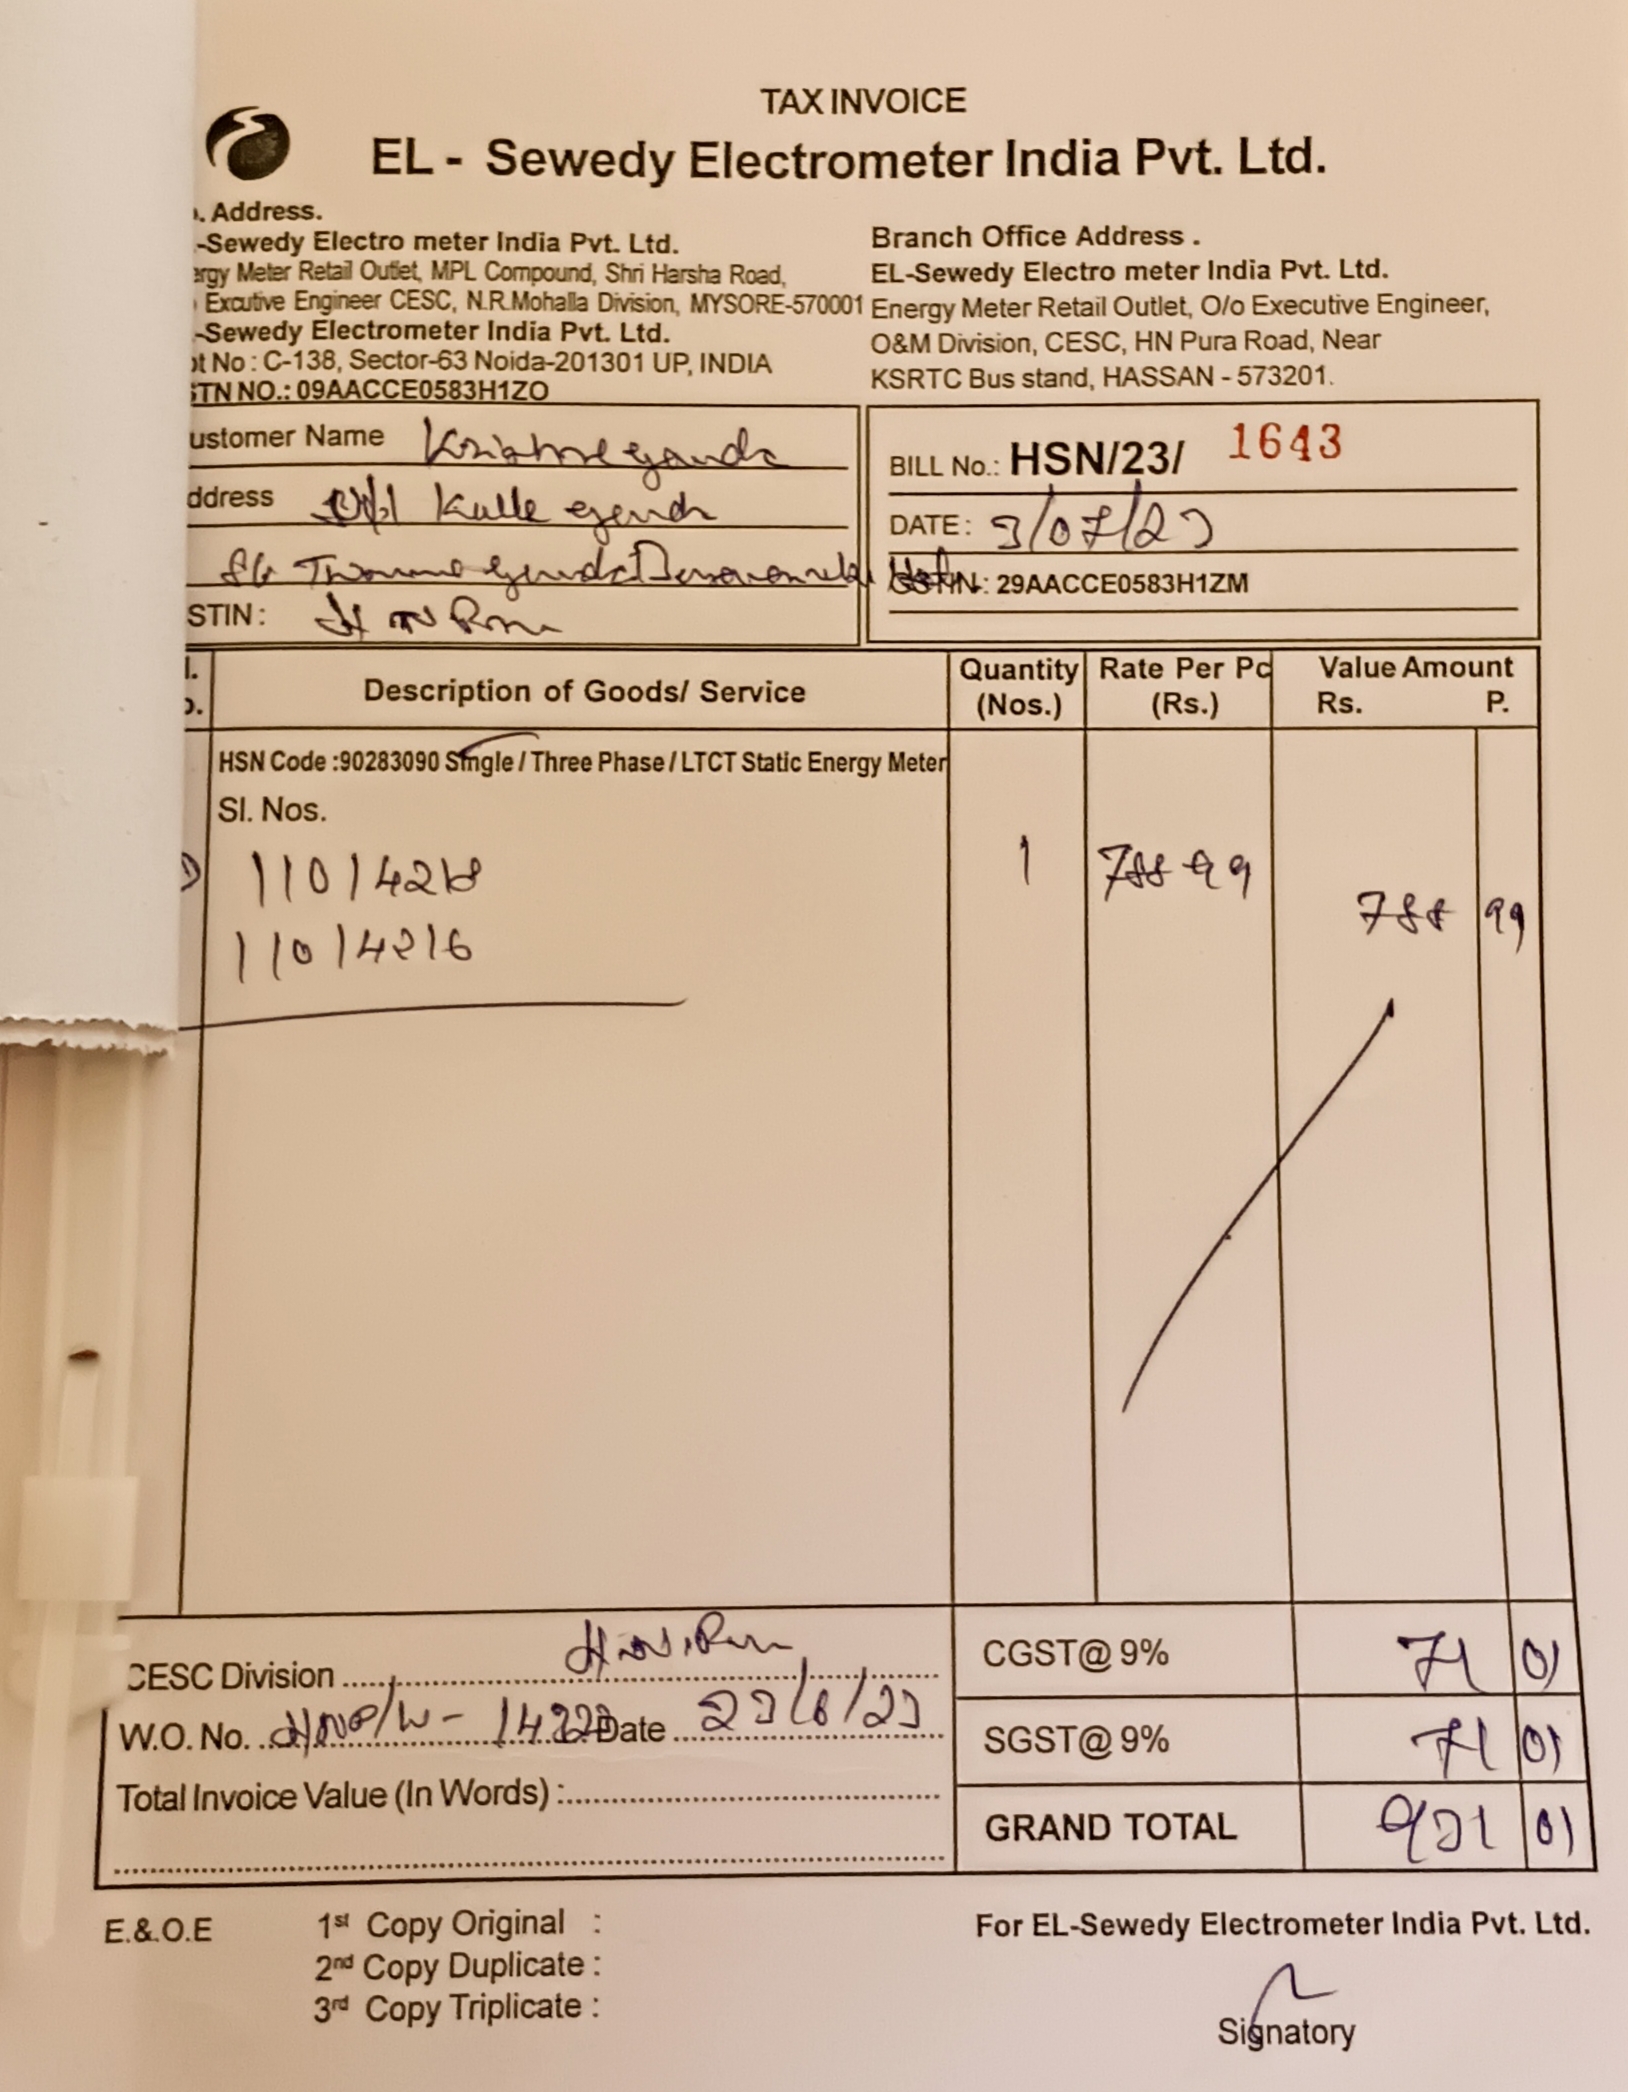 TAX INVOICE
EL - Sewedy Electrometer India Pvt. Ltd.
. Address.
-Sewedy Electro meter India Pvt. Ltd.
ergy Meter Retail Outlet, MPL Compound, Shri Harsha Road,
Excutive Engineer CESC, N.R.Mohalla Division, MYSORE-570001
-Sewedy Electrometer India Pvt. Ltd.
ot No : C-138, Sector-63 Noida-201301 UP, INDIA
STN NO.: 09AACCE0583H1ZO
Branch Office Address .
EL-Sewedy Electro meter India Pvt. Ltd.
Energy Meter Retail Outlet, O/o Executive Engineer,
O&M Division, CESC, HN Pura Road, Near
KSRTC Bus stand, HASSAN - 573201.
ustomer Name Krishnegowda
ddress Kulle gowda
STIN : H N Pura
BILL No.: HSN/23/ 1643
DATE : 3/07/23
GSTIN: 29AACCE0583H1ZM
l. o. Description of Goods/ Service Quantity (Nos.) Rate Per Pc (Rs.) Value Amount Rs. P.
HSN Code :90283090 Single / Three Phase / LTCT Static Energy Meter
Sl. Nos.
11014218 1 788 99 788 99
11014216
CESC Division H.N.Pura
W.O. No. Date 23/6/23
Total Invoice Value (In Words) :
CGST@ 9% 71 01
SGST@ 9% 71 01
GRAND TOTAL 931 01
E.&.O.E
1st Copy Original :
2nd Copy Duplicate :
3rd Copy Triplicate :
For EL-Sewedy Electrometer India Pvt. Ltd.
Signatory